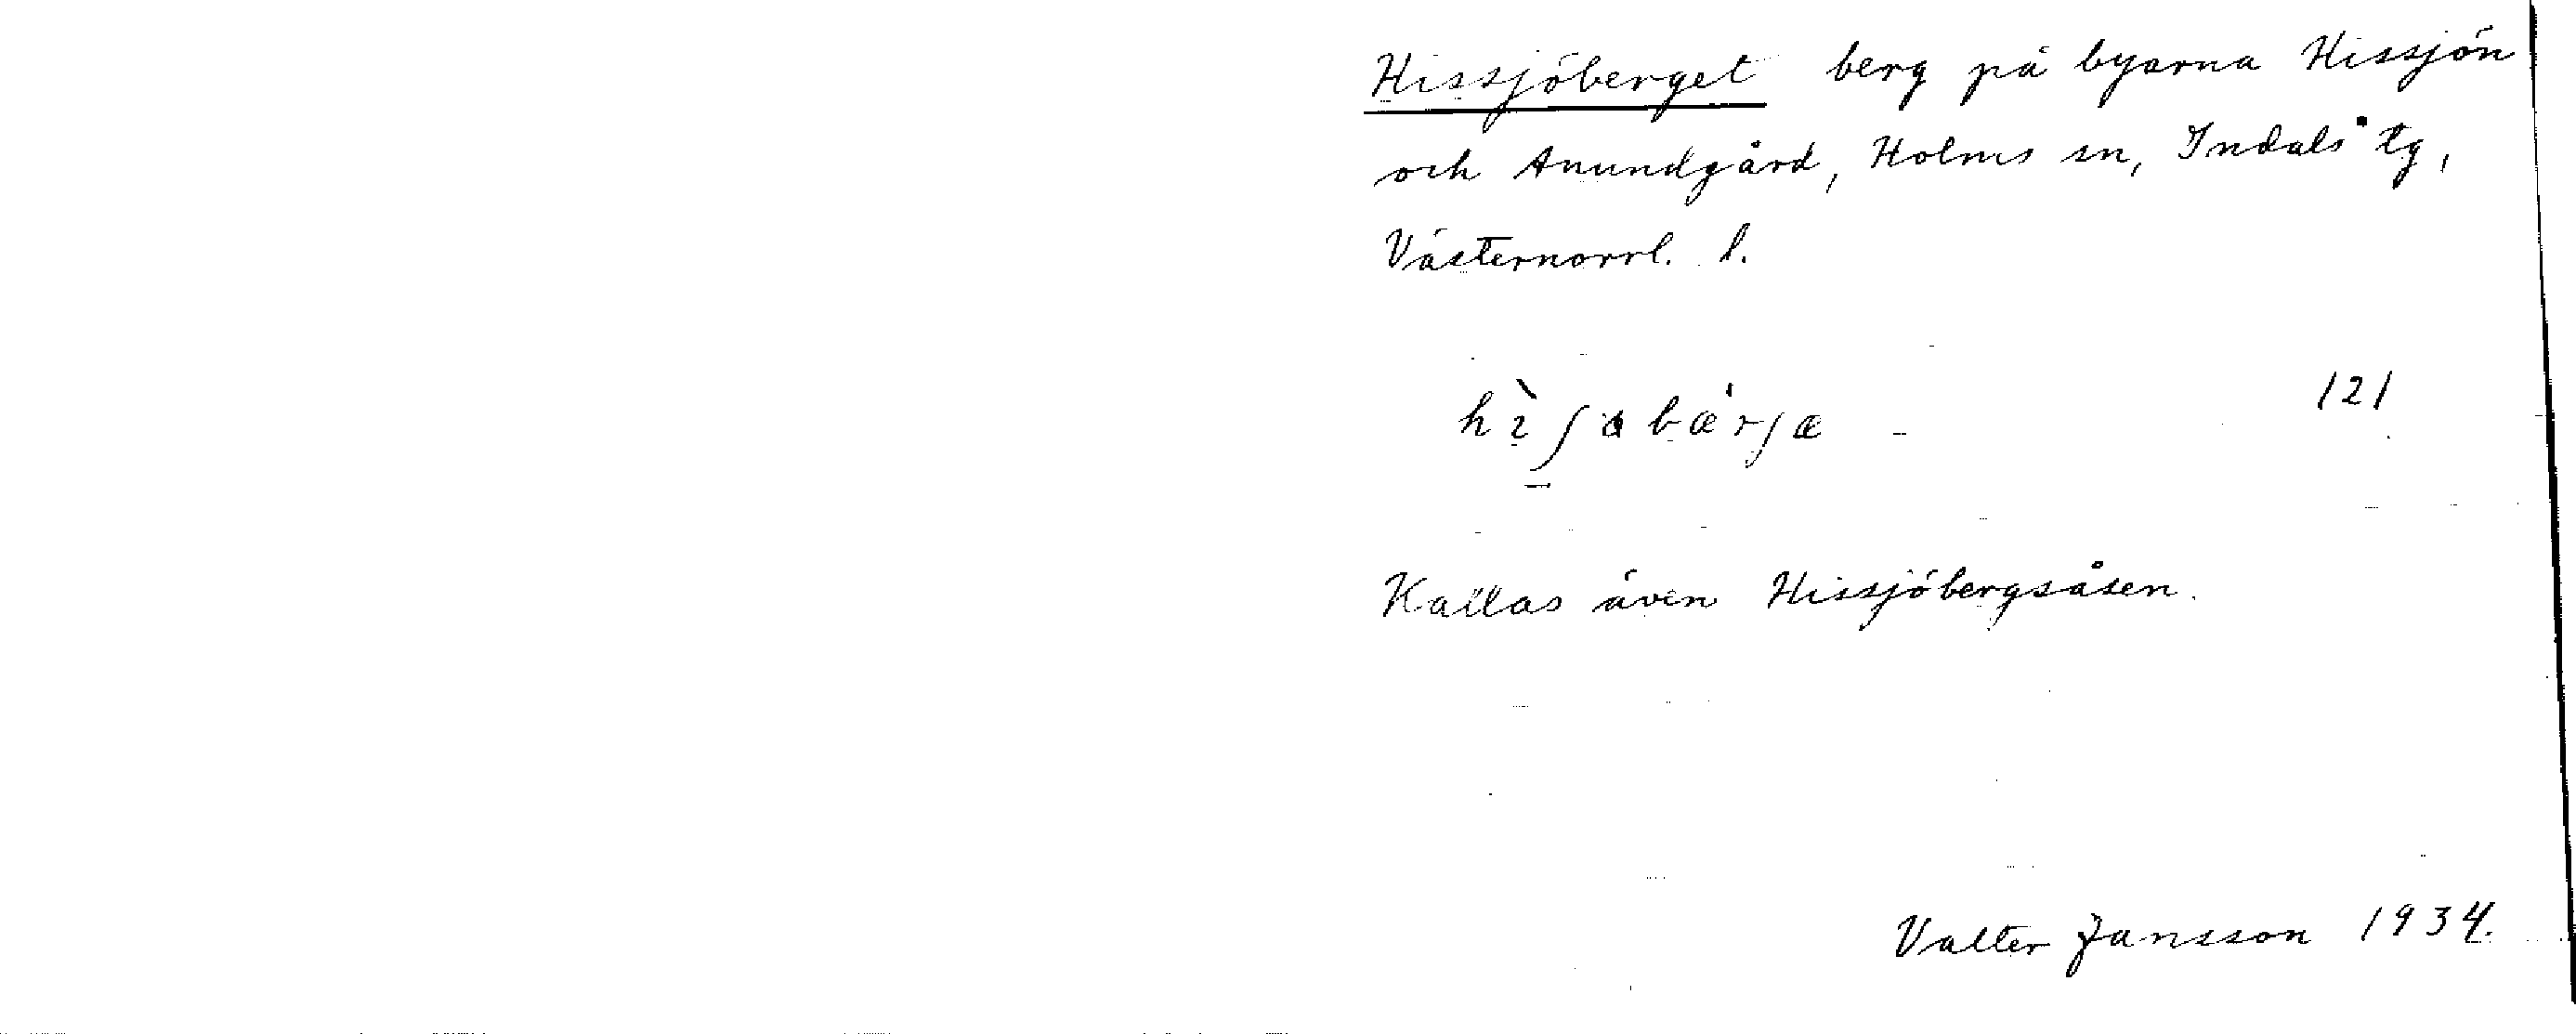 Hissjöberget berg på byarna Hissjön
och Anundgård, Holms sn, Indals tg,
Västernorrl. l.
121
Kallas även Hissjöbergsåsen.
Valter Jansson 1934.